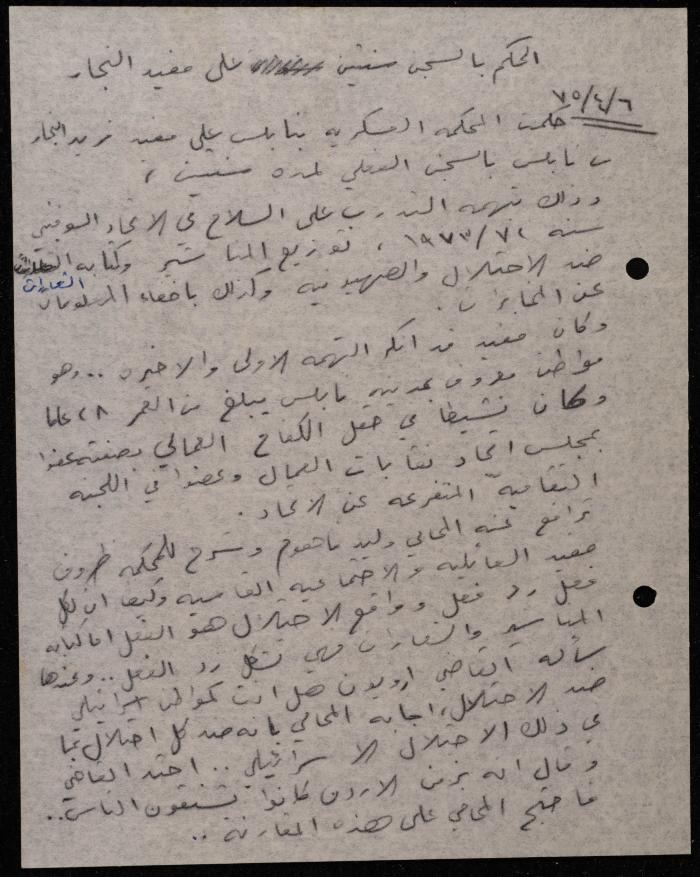 الحكم بالسجن سنتين على مفيد النجار
٧٥/٤/٦
حكمت المحكمة العسكرية بنابلس على مفيد فريد النجار
بالسجن الفعلي لمدة سنتين ،
وذلك بتهمة التدرب على السلاح في الاتحاد السوفيتي
سنة ٧٢/١٩٧٣ ، توزيع المناشير وكتابة
الشعارات
ضد الاحتلال والصهيونية وكذلك باخفاء المعلومات
عن المخابرات .
وكان مفيد قد انكر التهمة الاولى والاخيرة .. وهو
مواطن معروف بمدينة نابلس يبلغ من العمر ٢٨ عاما
وكان نشيطا في حقل الكفاح العمالي بصفته عضوا
بمجلس اتحاد نقابات العمال وعضوا في اللجنة
الثقافية المتفرعة عن الاتحاد .
ترافع عنه المحامي وليد الفاهوم وشرح للمحكمة ظروف
مفيد العائلية والاجتماعية القاسية وكيف ان لكل
فعل رد فعل وواقع الاحتلال هو الفعل اما كتابة
المناشير والشعارات فهي تشكل رد الفعل .. وعندها
سأله القاضي هل انت كمواطن اسرائيلي
ضد الاحتلال ، اجابه المحامي بانه ضد كل احتلال بما
في ذلك الاحتلال الاسرائيلي .. احتد القاضي
وقال انه بزمن الاردن كانوا يشنقون الناس ..
فاحتج المحامي على هذه المقارنة ..